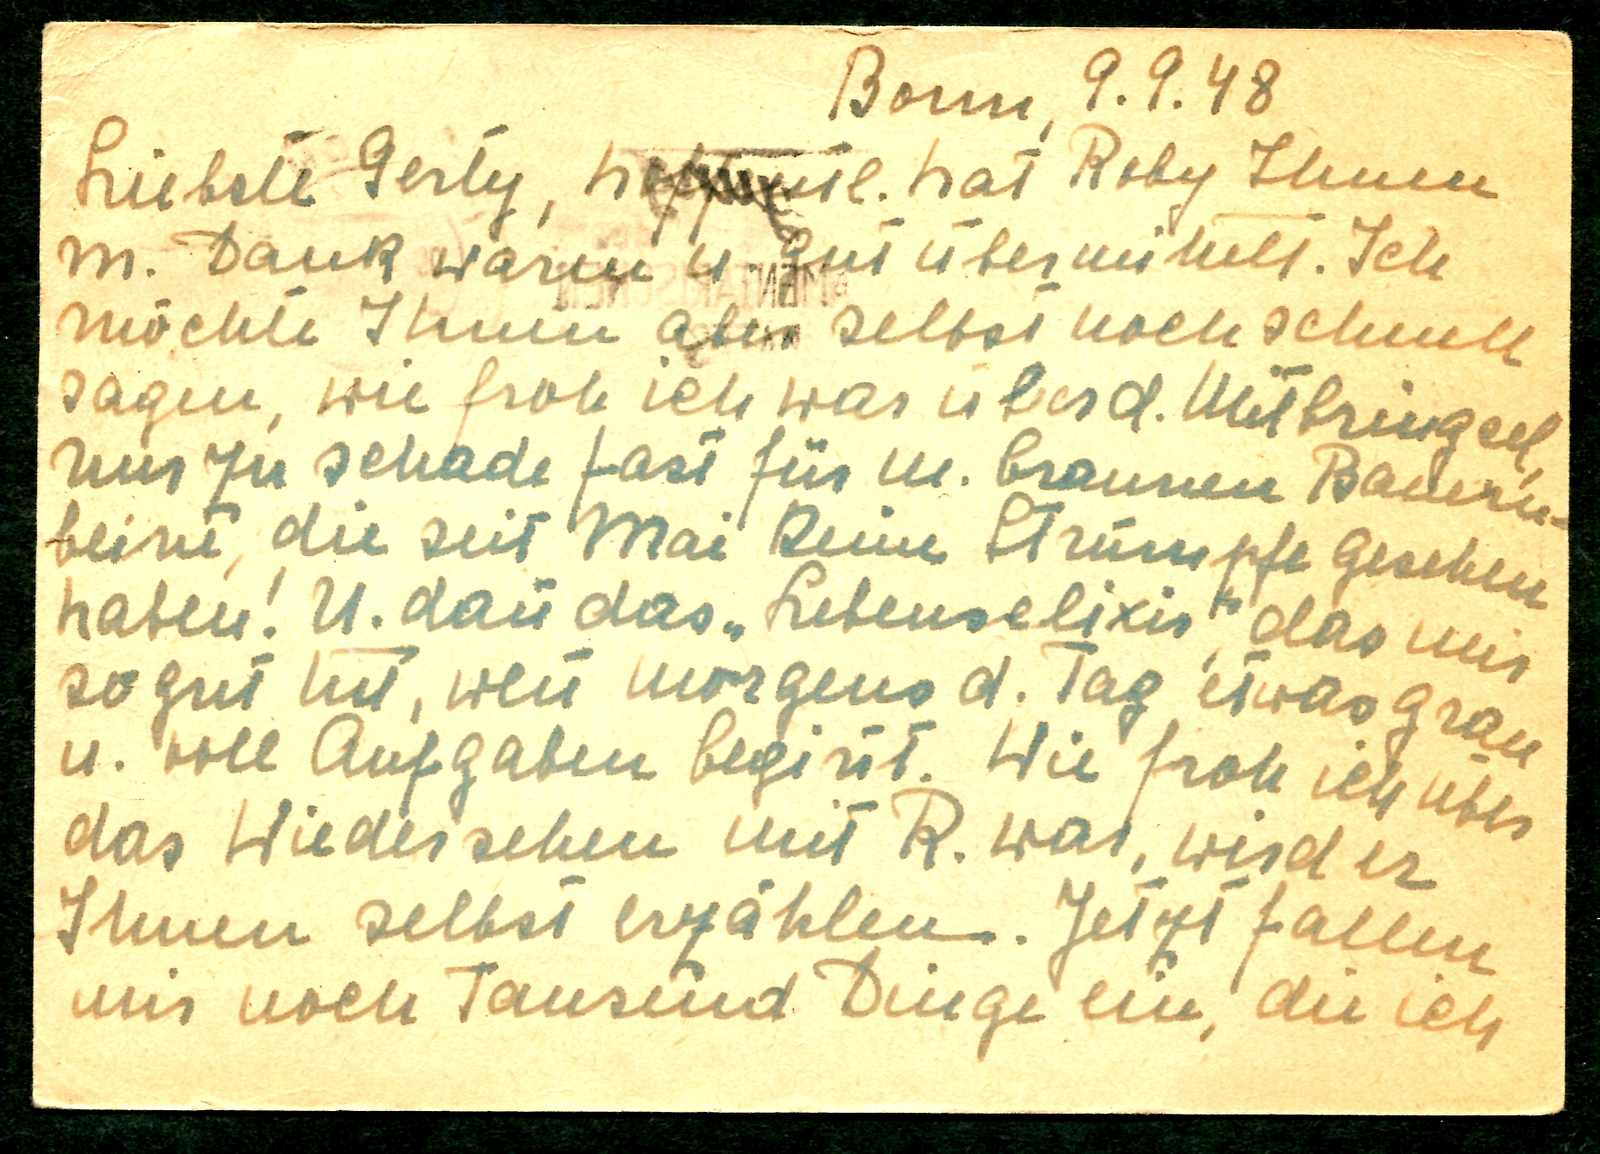 Bonn, 9.9.48
Liebste Gerty, hoffentl. hat Roby Ihnen
m. Dank warm u gut übermittelt. Ich
möchte Ihnen aber selbst noch schnell
sagen, wie froh ich war über d. Mitbringsel,
nur zu schade fast für m. braunen Bauern-
beine, die seit Mai keine Strümpfe gesehen
haben! U. dañ das „Lebenselixir", das mir
so gut tut, weñ morgens d. Tag etwas grau
u. voll Aufgaben begiñt. Wie froh ich über
das Wiedersehen mit R. war, wird er
Ihnen selbst erzählen. Jetzt fallen
mir noch Tausend Dinge ein, die ich